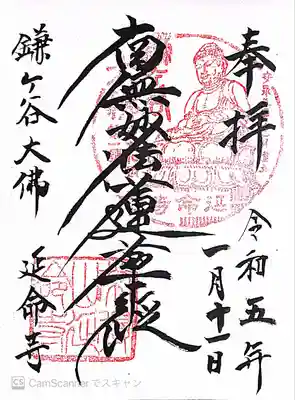 奉拝
令和五年
一月十一日
南無妙法蓮華経
鎌ヶ谷大佛
延命寺
CS CamScannerでスキャン